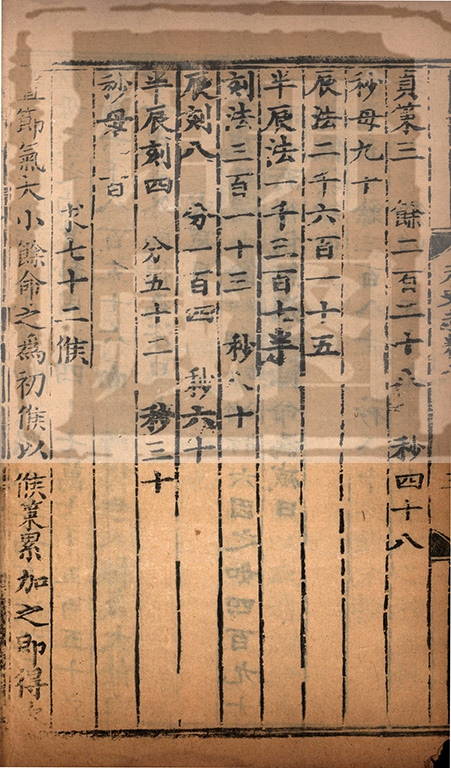 貞策三　餘二百二十八　秒四十八
秒母九十
辰法二千六百一十五
半辰法一千三百七半
刻法三百一十三　秒八十
辰刻八　分一百四　秒六十
半辰刻四　分五十二　秒三十
秒母　百
求七十二候
置節氣大小餘命之爲初候以候策累加之即得